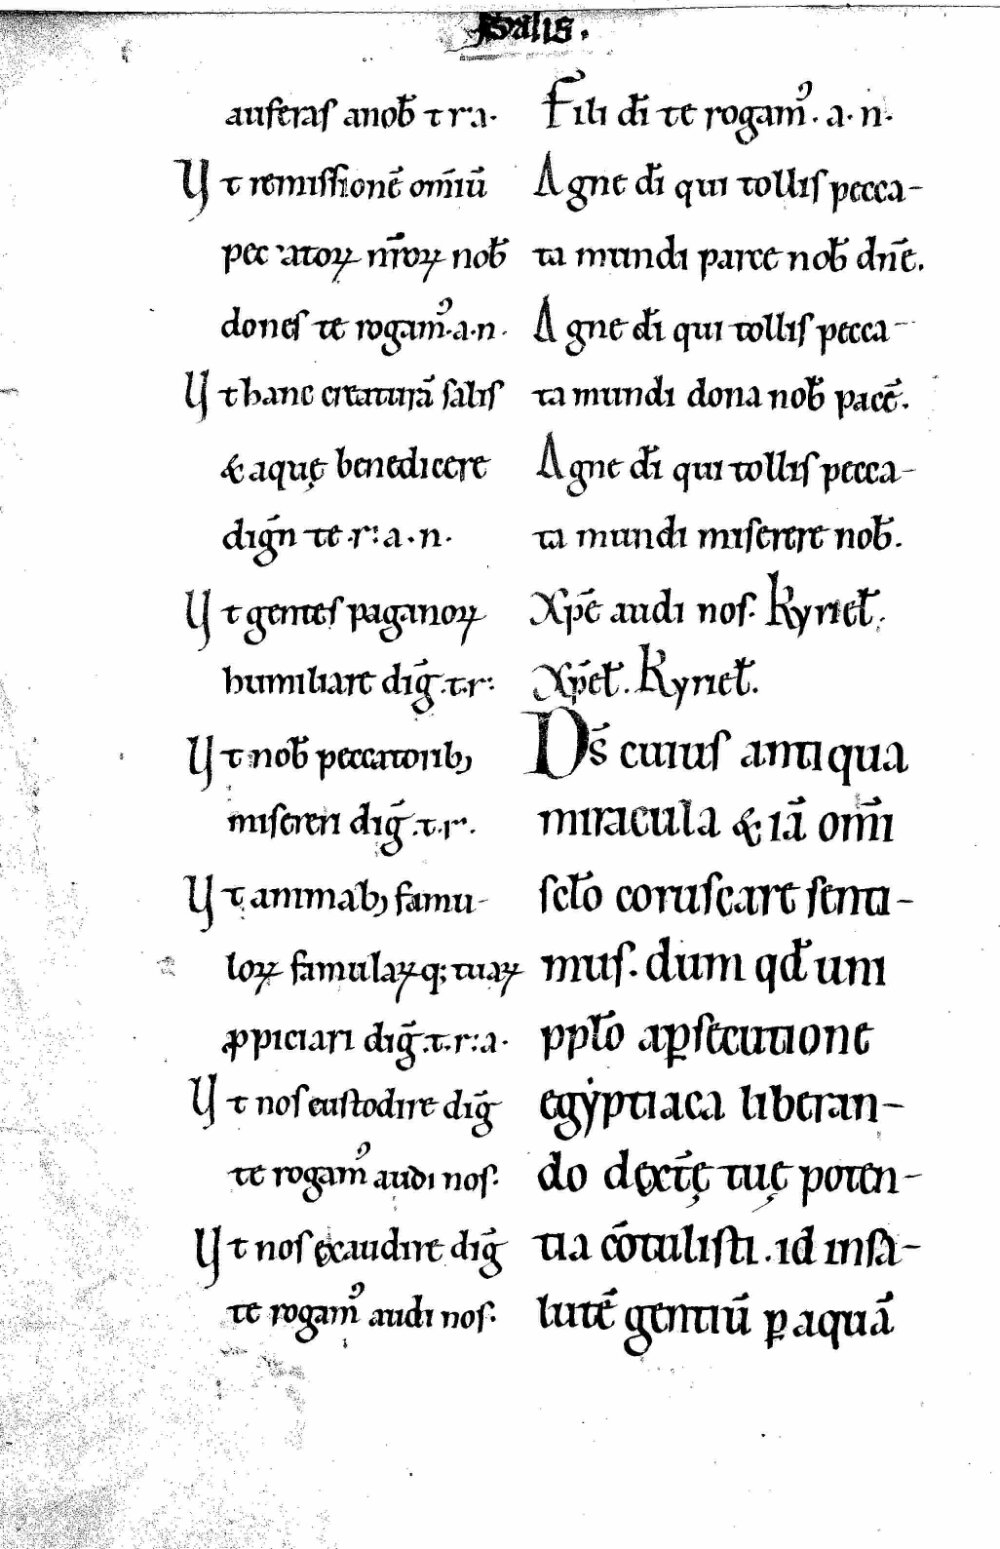 salis.
auferas a nob̄ t r: a·
Ut remissionē om̄iū
peccatoꝝ nr̄oꝝ nob̄
dones te rogam᷒·a·n·
Ut hanc creaturā salis
& aquę benedicere
dign̄ te·r: a·n·
Ut gentes paganoꝝ
humiliare diḡ.t.r:
Ut nob̄ peccatorib;
misereri diḡ.t.r.
Ut animab; famu-
loꝝ famulaꝝq; tuaꝝ
ꝓpiciari diḡ.t.r: a·
Ut nos custodire diḡ
te rogam᷒ audi nos.
Ut nos exaudire diḡ
te rogam᷒ audi nos.
Fili dī te rogam᷒. a·n·
Agne dī qui tollis pecca-
ta mundi parce nob̄ dn̄e.
Agne dī qui tollis pecca-
ta mundi dona nob̄ pacē.
Agne dī qui tollis pecca-
ta mundi miserere nob̄.
Xp̄e audi nos. Kyriel̄.
Xp̄el̄. Kyriel̄.
Ds̄ cuius antiqua
miracula & iā om̄i
scl̄o coruscare senti-
mus. dum qd̄ uni
ppl̄o a ꝑsecutione
egẏptiaca liberan-
do dext̄ę tuę poten-
tia cōtulisti. id in sa-
lutē gentiū ꝑ aquā